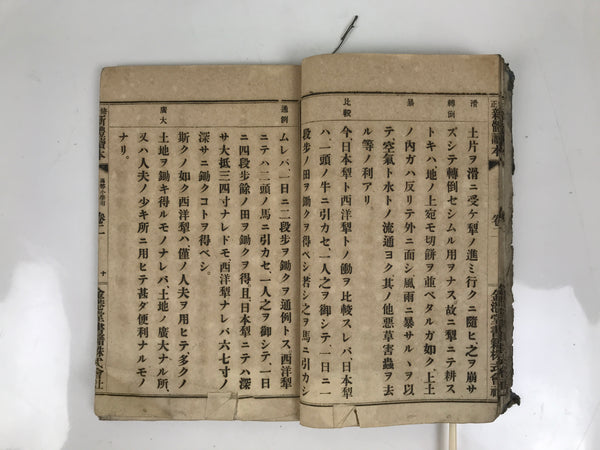 滑
轉倒
暴
比較
土片ヲ滑ニ受ケ犁ノ進ミ行クニ隨ヒ之ヲ崩サ
ズシテ轉倒セシムル用ヲナス、故ニ犁ニテ耕ス
トキハ、地ノ上宛モ切餅ヲ並ベタルガ如ク、上土
ノ內ガハ反リテ外ニ面シ風雨ニ暴サルヽヲ以
テ空氣ト水トノ流通ヨク、其ノ他惡草害蟲ヲ去
ル等ノ利アリ
今日本犁ト西洋犁トノ働ヲ比較スレバ、日本犁
ハ、一頭ノ牛ニ引カセ、一人之ヲ御シテ、一日ニ一
段步ノ田ヲ鋤クヲ得ベシ若シ之ヲ馬ニ引カシ
通例
廣大
ムレバ一日ニ二段步ヲ鋤クヲ通例トス、西洋犁
ニテハ二頭ノ馬ニ引カセ、一人之ヲ御シテ、一日
ニ四段步餘ノ田ヲ鋤クヲ得、且、日本犁ニテハ深
サ大抵三四寸ナレドモ、西洋犁ナレバ六七寸ノ
深サニ鋤クコトヲ得ベシ。
斯クノ如ク西洋犁ハ僅ノ人夫ヲ用ヒテ多クノ
土地ヲ鋤キ得ルモノナレバ、土地ノ廣大ナル所、
又ハ人夫ノ少キ所ニ用ヒテ甚ダ便利ナルモノ
ナリ。
新體讀本 高等小學用 卷二
十
金港堂書籍株式會社